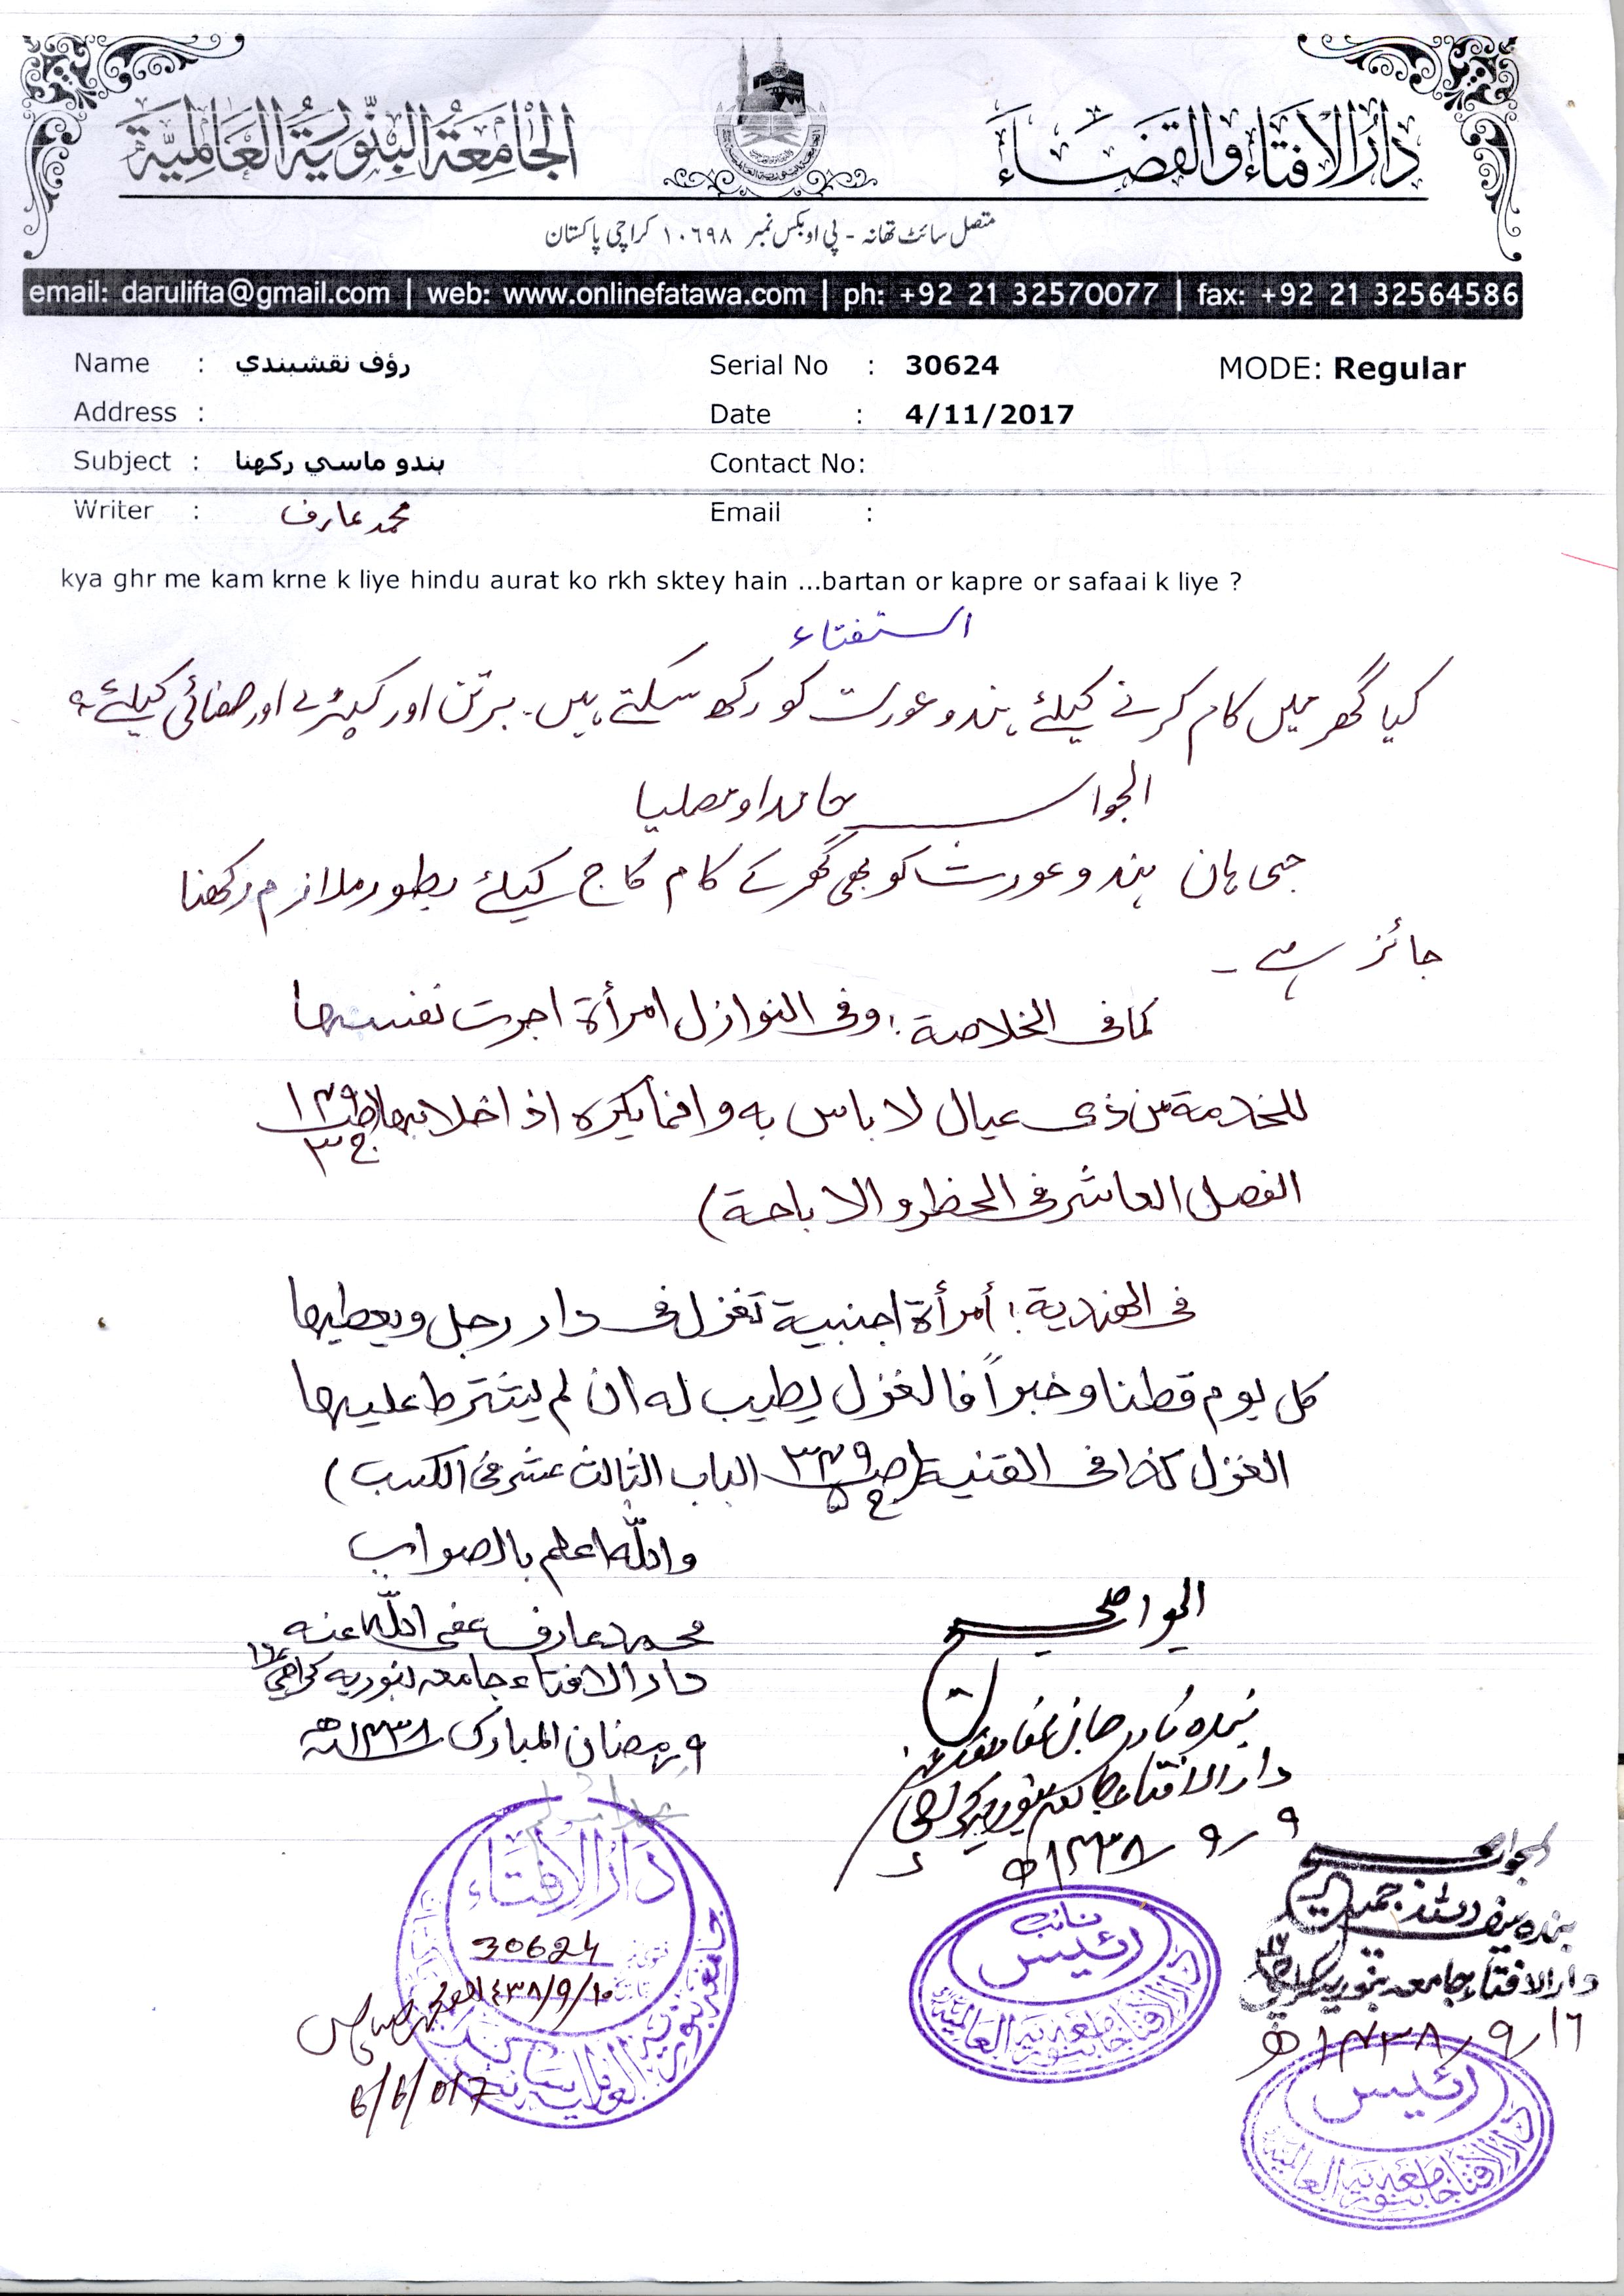 دَارُ الْاِفْتَاءِ وَالْقَضَاءِ
اَلْجَامِعَةُ الْبِنُّوْرِيَّةُ الْعَالَمِيَّةُ
متصل سائٹ تھانہ - پی او بکس نمبر ۱۰۶۹۸ کراچی پاکستان
email: darulifta@gmail.com | web: www.onlinefatawa.com | ph: +92 21 32570077 | fax: +92 21 32564586
Name : رؤف نقشبندي Serial No : 30624 MODE: Regular
Address : Date : 4/11/2017
Subject : ہندو ماسي رکھنا Contact No:
Writer : محمد عارف Email :
kya ghr me kam krne k liye hindu aurat ko rkh sktey hain ...bartan or kapre or safaai k liye ?
استفتاء
کیا گھر میں کام کرنے کیلئے ہندو عورت کو رکھ سکتے ہیں۔ برتن اور کپڑے اور صفائی کیلئے؟
الجواب حامدا و مصلیا
جی ہاں ہندو عورت کو بھی گھر کے کام کاج کیلئے بطور ملازم رکھنا
جائز ہے ۔
کما فی الخلاصة: وفی النوازل امرأة اجرت نفسها
للخدمة من ذی عیال لا باس به وانما یکره اذا خلا بها (ص ۱۴۹ ج ۳
الفصل العاشر فی الحظر والاباحة)
فی الهندية: أمرأة اجنبية تغزل فی دار رجل ويعطيها
کل یوم قطنا وخبزاً فالغزل یطیب له ان لم یشترط علیها
الغزل کذا فی القنیة (ص ۳۴۹ ج ۵ الباب الثالث عشر فی الکسب)
واللّٰه اعلم بالصواب
محمد عارف عفی اللّٰه عنه
دار الافتاء جامعہ بنوریہ کراچی
۹ رمضان المبارک ۱۴۳۸ھ
الجواب صحیح
بندہ نادر جان عفا اللہ عنہ
دار الافتاء جامعہ بنوریہ کراچی
۹ / ۹ / ۱۴۳۸ھ
الجواب صحیح
بندہ سیف اللہ جمیل
دار الافتاء جامعہ بنوریہ کراچی
۱۶ / ۹ / ۱۴۳۸ھ
دَارُ الْاِفْتَاء
30624
۱۰/۹/۱۴۳۸
6/6/017
نائب
رئیس
دار الافتاء جامعہ بنوریہ العالمیہ
رئیس
دار الافتاء جامعہ بنوریہ العالمیہ